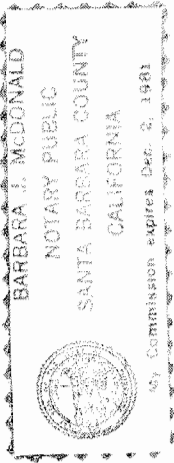 BARBARA J. McDONALD
NOTARY PUBLIC
SANTA BARBARA COUNTY
CALIFORNIA
My Commission expires Dec. 2, 1981